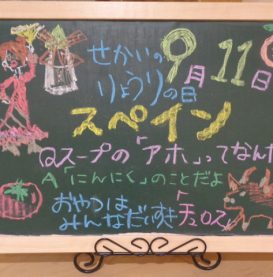 せかいの 9月11日
りょうりの日
スペイン
Qスープの「アホ」ってなん
A「にんにく」のことだよ
おやつは
みんなだいすき「チュロス」